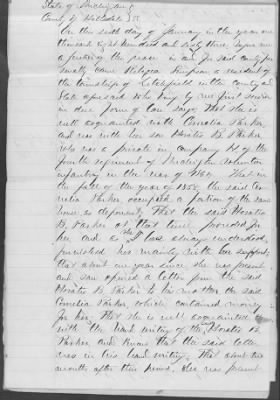 State of Michigan
County of Hillsdale SS
On the sixth day of January in the year one
thousand eight hundred and sixty three, before me
a justice of the peace in and for said county per
sonally came Religea Simpson a resident of
the township of Litchfield in the county and
State aforesaid who being by me first sworn
in due form of law says, That she is
well acquainted with Cornelia Parker
and was with her son Horatio B. Parker
who was a private in company H of the
fourth regiment of Michigan volunteer
infantry in the war of 1861. That in
the fall of the year of 1858, the said Cor
nelia Parker, occupied a portion of the same
house as deponent, That the said Horatio
B. Parker at that time provided for
her and as she has always understood,
furnished her mainly with her support,
that about one year since she was present
and saw opened a letter from the said
Horatio B. Parker to his mother the said
Cornelia Parker, which contained money
for her, That she is well acquainted
with the hand writing of the said Horatio B.
Parker and knows that the said letter
was in his hand writing. That about two
months after this period, She was present